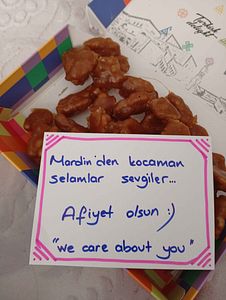 Turkish
delight
Mardin'den kocaman
selamlar sevgiler...
Afiyet olsun :)
"we care about you"